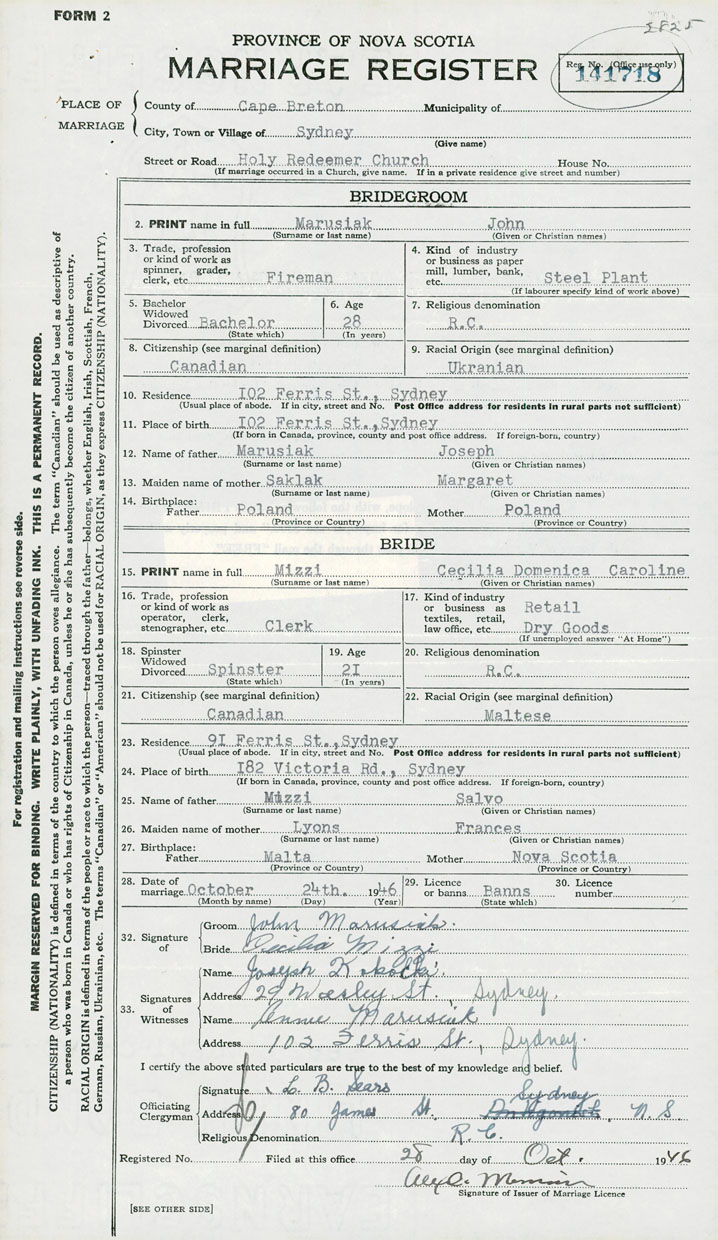 FORM 2
5825
PROVINCE OF NOVA SCOTIA
MARRIAGE REGISTER
Reg. No. (Office use only)
141718
PLACE OF MARRIAGE
County of Cape Breton Municipality of
City, Town or Village of Sydney
(Give name)
Street or Road Holy Redeemer Church House No.
(If marriage occurred in a Church, give name. If in a private residence give street and number)
BRIDEGROOM
2. PRINT name in full Marusiak John
(Surname or last name) (Given or Christian names)
3. Trade, profession or kind of work as spinner, grader, clerk, etc. Fireman
4. Kind of industry or business as paper mill, lumber, bank, etc. Steel Plant
(If labourer specify kind of work above)
5. Bachelor Widowed Divorced Bachelor
(State which)
6. Age 28
(In years)
7. Religious denomination
R.C.
8. Citizenship (see marginal definition)
Canadian
9. Racial Origin (see marginal definition)
Ukranian
10. Residence I02 Ferris St., Sydney
(Usual place of abode. If in city, street and No. Post Office address for residents in rural parts not sufficient)
11. Place of birth I02 Ferris St.,Sydney
(If born in Canada, province, county and post office address. If foreign-born, country)
12. Name of father Marusiak Joseph
(Surname or last name) (Given or Christian names)
13. Maiden name of mother Saklak Margaret
(Surname or last name) (Given or Christian names)
14. Birthplace:
Father Poland Mother Poland
(Province or Country) (Province or Country)
BRIDE
15. PRINT name in full Mizzi Cecilia Domenica Caroline
(Surname or last name) (Given or Christian names)
16. Trade, profession or kind of work as operator, clerk, stenographer, etc. Clerk
17. Kind of industry or business as textiles, retail, law office, etc. Retail Dry Goods
(If unemployed answer "At Home")
18. Spinster Widowed Divorced Spinster
(State which)
19. Age 2I
(In years)
20. Religious denomination
R.C.
21. Citizenship (see marginal definition)
Canadian
22. Racial Origin (see marginal definition)
Maltese
23. Residence 9I Ferris St.,Sydney
(Usual place of abode. If in city, street and No. Post Office address for residents in rural parts not sufficient)
24. Place of birth I82 Victoria Rd., Sydney
(If born in Canada, province, county and post office address. If foreign-born, country)
25. Name of father Mizzi Salvo
(Surname or last name) (Given or Christian names)
26. Maiden name of mother Lyons Frances
(Surname or last name) (Given or Christian names)
27. Birthplace:
Father Malta Mother Nova Scotia
(Province or Country) (Province or Country)
28. Date of marriage October 24th. 1946
(Month by name) (Day) (Year)
29. Licence or banns Banns
(State which)
30. Licence number
32. Signature of
Groom John Marusiak.
Bride Cecilia Mizzi
33. Signatures of Witnesses
Name Joseph
Address 29 Wesley St., Sydney.
Name Annie Marusiak
Address 102 Ferris St., Sydney.
I certify the above stated particulars are true to the best of my knowledge and belief.
Officiating Clergyman
Signature L. B. Sears
Address 80 James St. Sydney N.S.
Religious Denomination R.C.
Registered No. Filed at this office 28 day of Oct. 1946
Signature of Issuer of Marriage Licence
[SEE OTHER SIDE]
For registration and mailing instructions see reverse side.
MARGIN RESERVED FOR BINDING. WRITE PLAINLY, WITH UNFADING INK. THIS IS A PERMANENT RECORD.
CITIZENSHIP (NATIONALITY) is defined in terms of the country to which the person owes allegiance. The term "Canadian" should be used as descriptive of
a person who was born in Canada or who has rights of Citizenship in Canada, unless he or she has subsequently become the citizen of another country.
RACIAL ORIGIN is defined in terms of the people or race to which the person—traced through the father—belongs, whether English, Irish, Scottish, French,
German, Russian, Ukrainian, etc. The terms "Canadian" or "American" should not be used for RACIAL ORIGIN, as they express CITIZENSHIP (NATIONALITY).